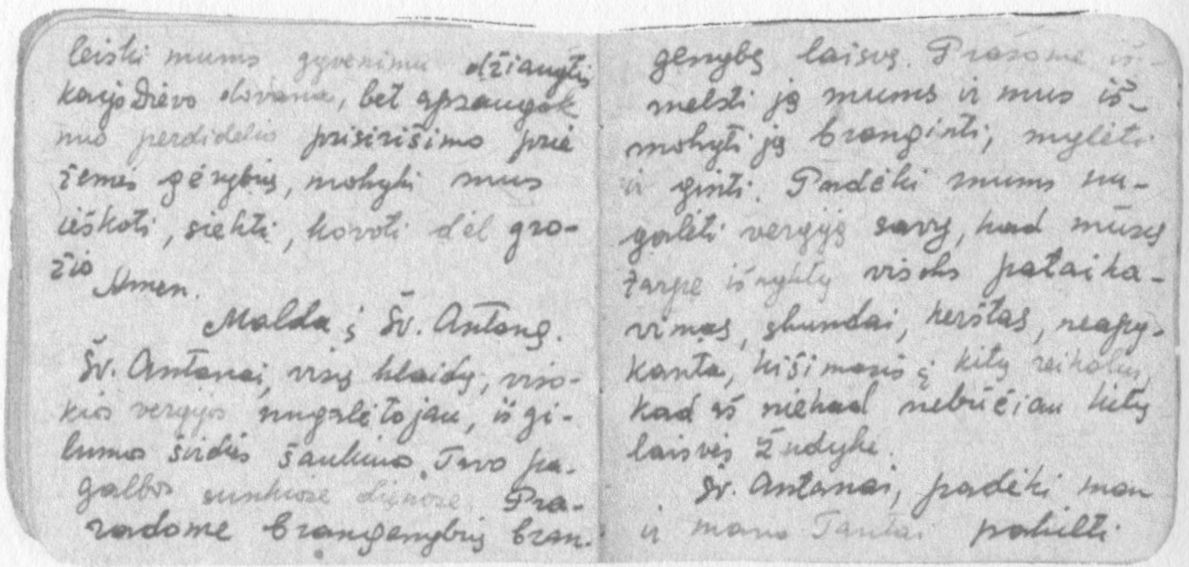 leiski mums gyvenimu džiaugtis
kaip Dievo dovana, bet apsaugok
nuo perdidelio prisirišimo prie
žemės gėrybių, mokyki mus
ieškoti, siekti, kovoti dėl gro-
žio Amen.
Malda į Šv. Antaną.
Šv. Antanai, visų klaidų, viso-
kios vergijos nugalėtojau, iš gi-
lumos širdies šaukiuos Tavo pa-
galbos sunkiose dienose. Pra-
radome brangenybių bran-
genybę laisvę. Prašome iš-
melsti ją mums ir mus iš-
mokyti ją branginti, mylėti
ir ginti. Padėki mums nu-
galėti vergiją savy, kad mūsų
tarpe išnyktų visoks pataika-
vimas, skundai, kerštas, neapy-
kanta, kišimasis į kitų reikalus,
kad aš niekad nebūčiau kitų
laisvės žudykė.
Šv. Antanai, padėki man
ir mano Tautai pakilti